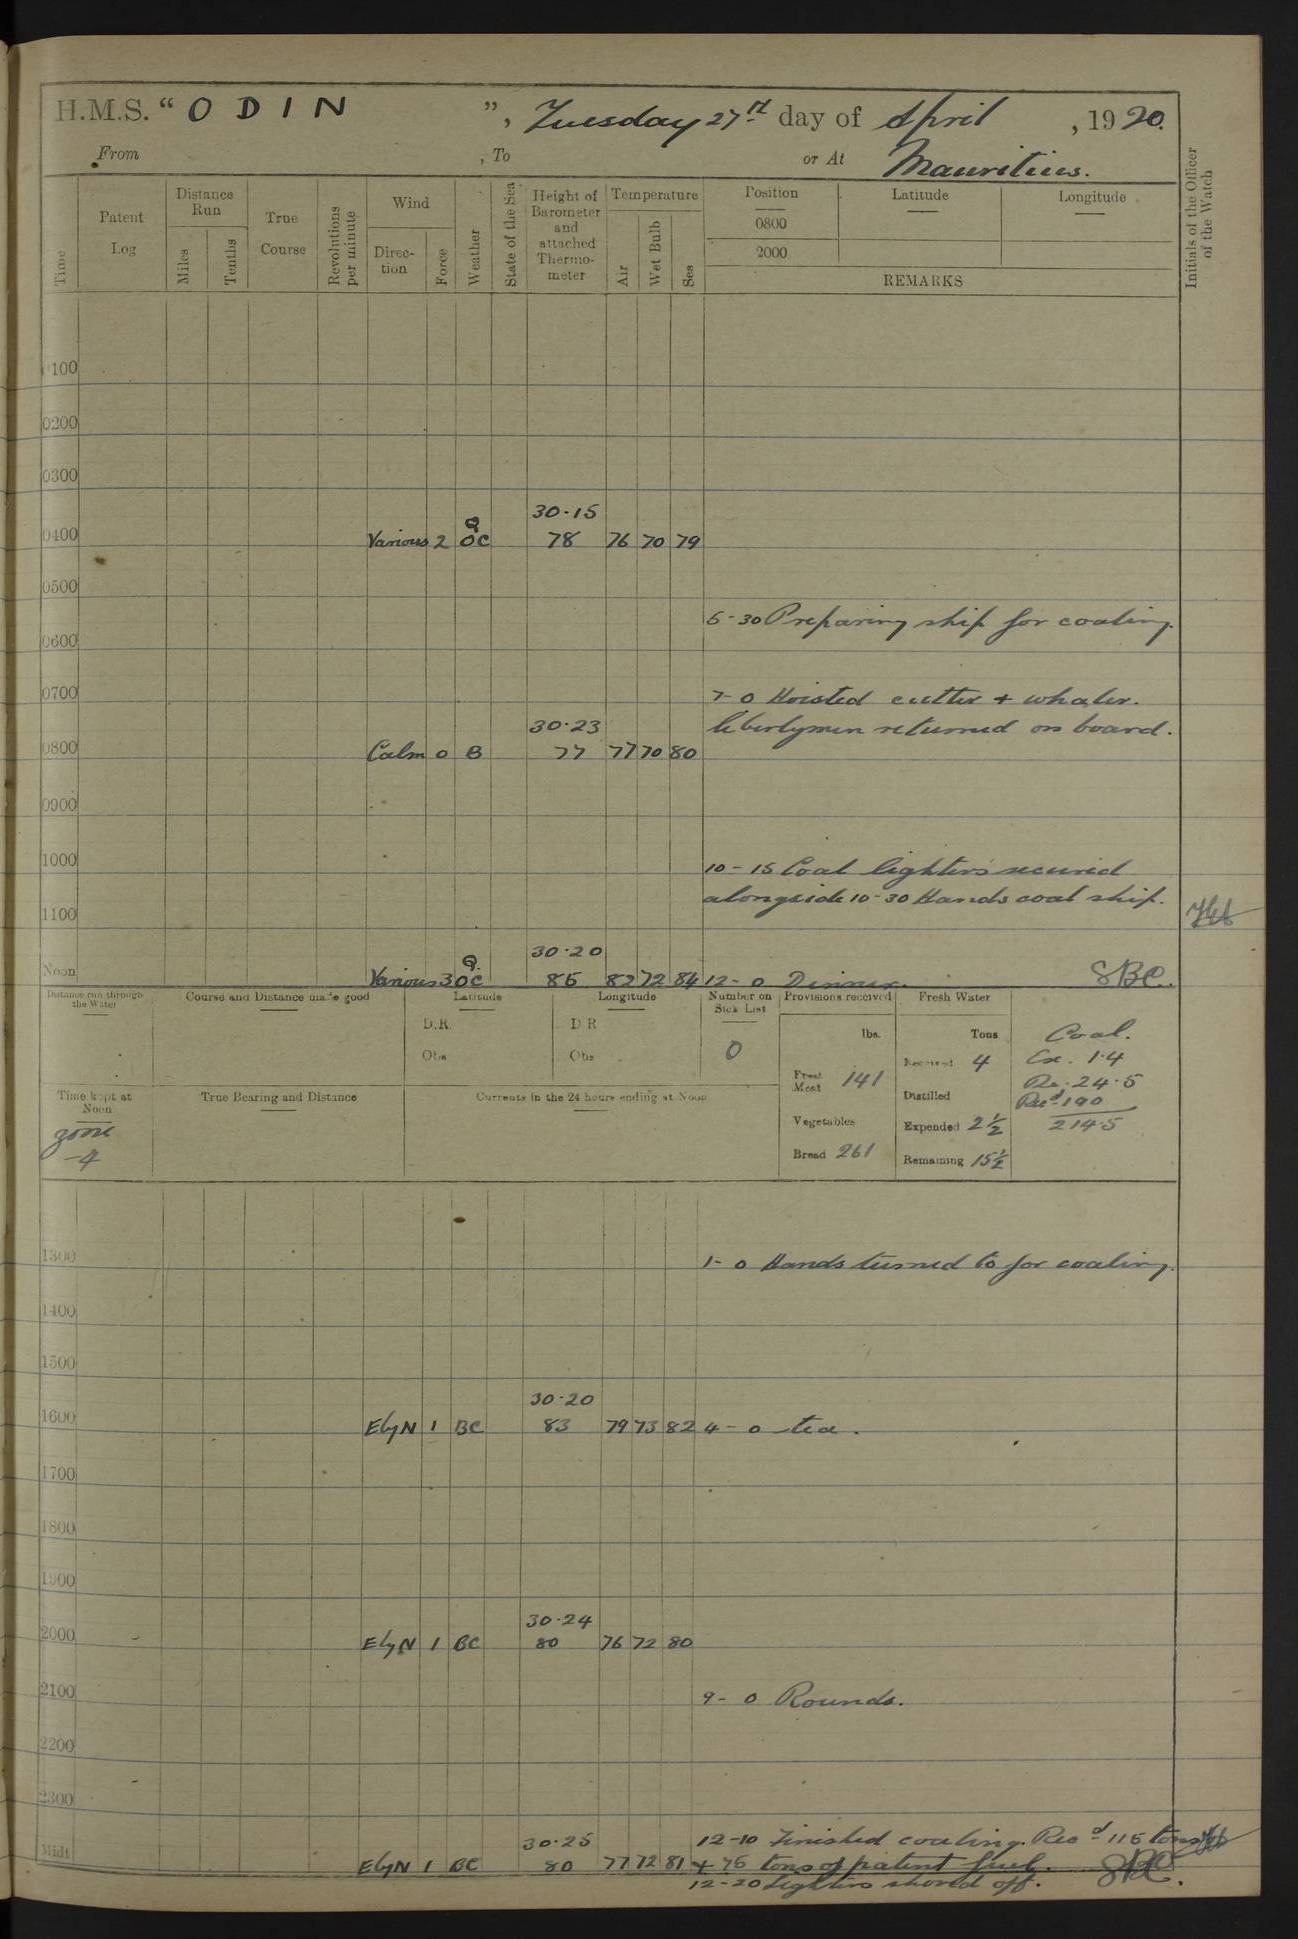 H.M.S. “ ODIN ”, Tuesday 27th day of April, 1920.
From , To or At Mauritius.
Time
Patent Log
Distance Run
Miles
Tenths
True Course
Revolutions per minute
Wind
Direction
Force
Weather
State of the Sea
Height of Barometer and attached Thermometer
Temperature
Air
Wet Bulb
Sea
Position
0800
2000
Latitude
Longitude
REMARKS
Initials of the Officer of the Watch
0100
0200
0300
30·15
0400 Various 2 OC Q 78 76 70 79
0500
5-30 Preparing ship for coaling.
0600
0700 7-0 Hoisted cutter + whaler.
30·23 libertymen returned on board.
0800 Calm 0 B 77 77 70 80
0900
1000 10-15 Coal lighters secured
alongside 10-30 Hands coal ship.
1100
30·20
Noon Various 3 OC Q 85 82 72 84 12-0 Dinner. SBC.
Distance run through the Water
Course and Distance made good
Latitude
D.R.
Obs
Longitude
D R
Obs
Number on Sick List
0
Provisions received
lbs.
Fresh Meat 141
Vegetables
Bread 261
Fresh Water
Tons
Received 4
Distilled
Expended 2½
Remaining 15½
Coal.
Ex. 1·4
Re. 24·5
Recd 190
214·5
Time kept at Noon
zone
-4
True Bearing and Distance
Currents in the 24 hours ending at Noon
1300 1-0 Hands turned to for coaling.
1400
1500
30·20
1600 EbyN 1 BC 83 79 73 82 4-0 tea.
1700
1800
1900
30·24
2000 EbyN 1 BC 80 76 72 80
2100 9-0 Rounds.
2200
2300
30·25 12-10 Finished coaling. Recd 115 tons
Midt EbyN 1 BC 80 77 72 81 + 75 tons of patent fuel. SBC.
12-20 Lighters shoved off.